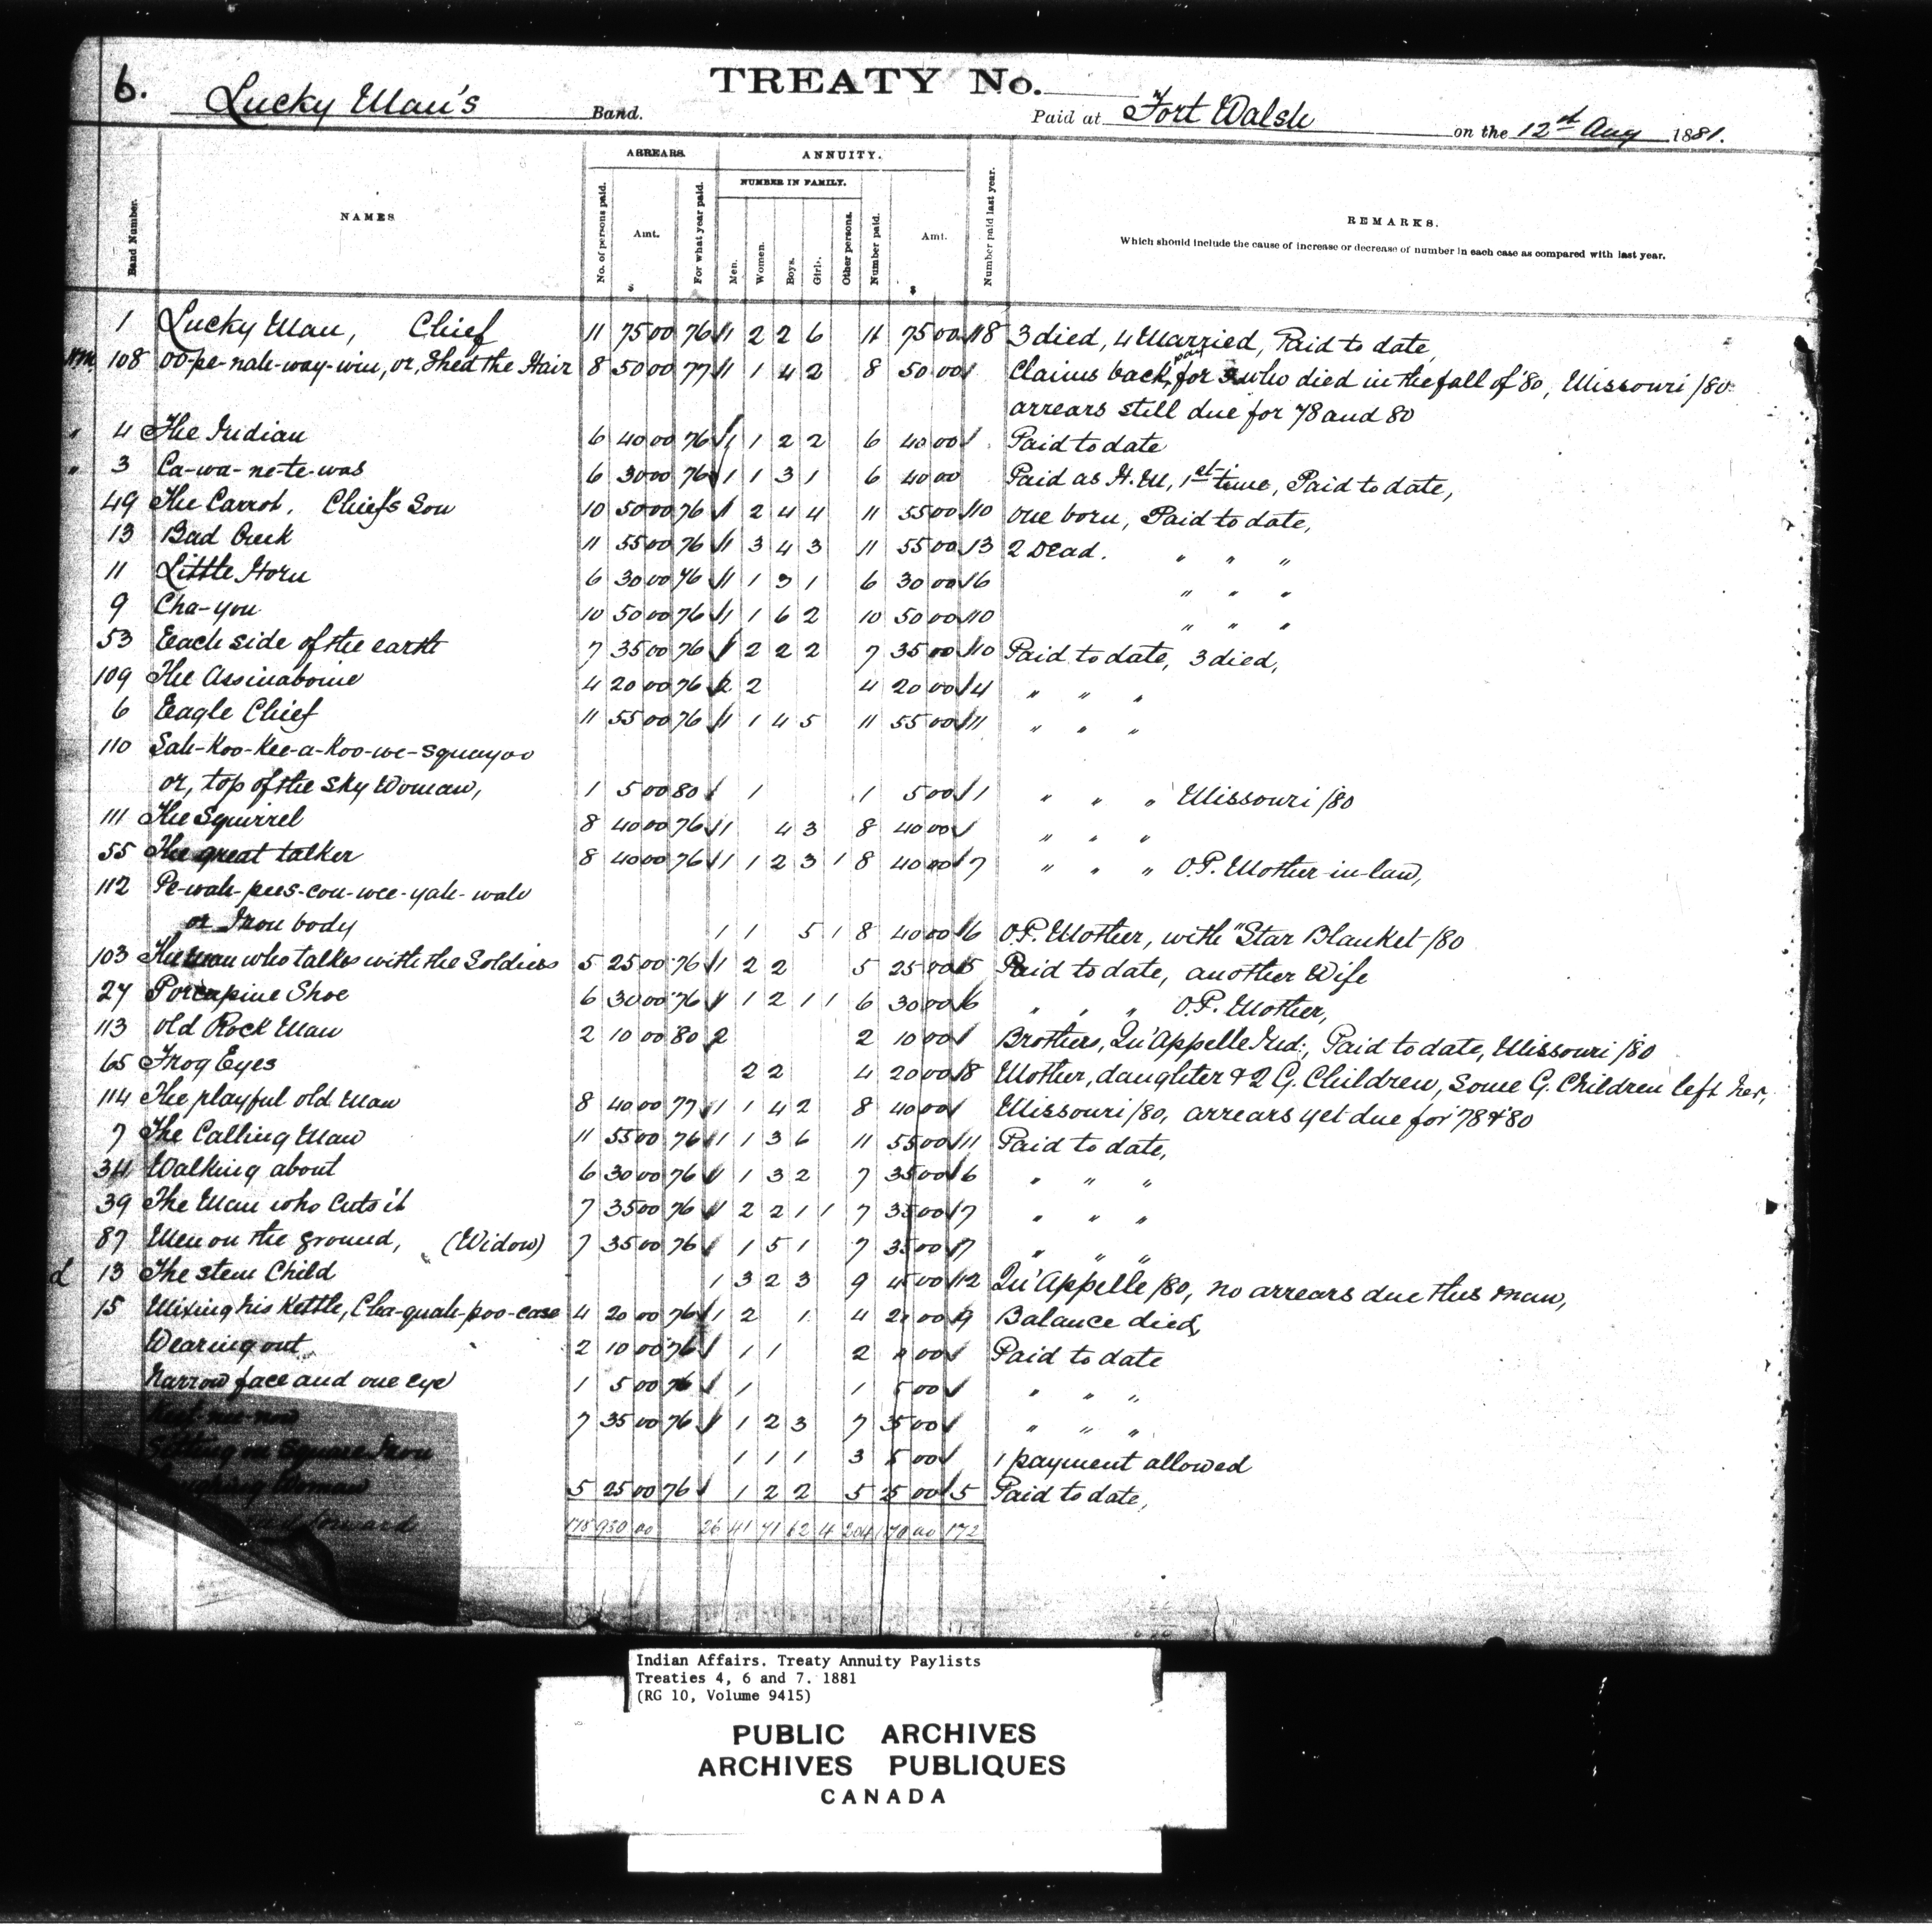 6. TREATY No.
Lucky Man's Band. Paid at Fort Walsh on the 12st Aug 1881.
ARREARS. ANNUITY.
NUMBER IN FAMILY.
Band Number. NAMES No. of persons paid. Amt. $ For what year paid. Men. Women. Boys. Girls. Other persons. Number paid. Amt. $ Number paid last year. REMARKS.
Which should include the cause of increase or decrease of number in each case as compared with last year.
1 Lucky Man, Chief 11 75 00 76 1 2 2 6 11 75 00 18 3 died, 4 Married, Paid to date,
108 oo-pe-nah-way-win, or, Shed the Hair 8 50 00 77 1 1 4 2 8 50 00 Claims back pay for 3 who died in the fall of 80, Missouri /80
arrears still due for 78 and 80
" 4 The Indian 6 40 00 76 1 1 2 2 6 40 00 Paid to date
" 3 Ca-wa-ne-te-was 6 30 00 76 1 1 3 1 6 40 00 Paid as H.M, 1st time, Paid to date,
49 The Carrot, Chief's Son 10 50 00 76 1 2 4 4 11 55 00 10 one born, Paid to date,
13 Bad Creek 11 55 00 76 1 3 4 3 11 55 00 13 2 Dead. " " "
11 Little Horn 6 30 00 76 1 1 3 1 6 30 00 6 " " "
9 Cha-you 10 50 00 76 1 1 6 2 10 50 00 10 " " "
53 Each side of the earth 7 35 00 76 1 2 2 2 7 35 00 10 Paid to date, 3 died,
109 The Assinaboine 4 20 00 76 2 2 4 20 00 4 " " "
6 Eagle Chief 11 55 00 76 1 1 4 5 11 55 00 11 " " "
110 Sah-Koo-Kee-a-Koo-we-squayoo
or, top of the Sky Woman, 1 5 00 80 1 1 5 00 1 " " " Missouri /80
111 The Squirrel 8 40 00 76 1 4 3 8 40 00 " " "
55 The great talker 8 40 00 76 1 1 2 3 1 8 40 00 7 " " " O.P. Mother-in-law,
112 Pe-wah-pees-cou-wee-yah-wah
or Iron body 1 1 5 1 8 40 00 6 O.P. Mother, with "Star Blanket /80
103 The Man who talks with the Soldiers 5 25 00 76 1 2 2 5 25 00 5 Paid to date, another Wife
27 Porcupine Shoe 6 30 00 76 1 1 2 1 1 6 30 00 6 " " " O.P. Mother,
113 Old Rock Man 2 10 00 80 2 2 10 00 Brothers, Qu'Appelle Ind:, Paid to date, Missouri /80
65 Frog Eyes 2 2 4 20 00 8 Mother, daughter & 2 G. Children, Some G. Children left her,
114 The playful old Man 8 40 00 77 1 1 4 2 8 40 00 Missouri /80, arrears yet due for 78 & 80
7 The Calling Man 11 55 00 76 1 1 3 6 11 55 00 11 Paid to date,
34 Walking about 6 30 00 76 1 1 3 2 7 35 00 6 " " "
39 The Man who Cuts it 7 35 00 76 1 2 2 1 1 7 35 00 7 " " "
87 Men on the ground, (Widow) 7 35 00 76 1 5 1 7 35 00 7 " " "
d 13 The stem Child 1 3 2 3 9 45 00 12 Qu'Appelle /80, no arrears due this man,
15 Mixing his Kettle, Cha-quah-poo-case 4 20 00 76 1 2 1 4 20 00 9 Balance died,
Wearing out 2 10 00 76 1 1 2 00 Paid to date
Narrow face and one eye 1 5 00 76 1 1 5 00 " " "
7 35 00 76 1 1 2 3 7 35 00 " " "
Sitting on Square Iron 1 1 1 3 00 1 payment allowed
Woman 5 25 00 76 1 2 2 5 25 00 5 Paid to date,
forward 178 930 00 26 41 71 62 4 204 00 172
Indian Affairs. Treaty Annuity Paylists
Treaties 4, 6 and 7. 1881
(RG 10, Volume 9415)
PUBLIC ARCHIVES
ARCHIVES PUBLIQUES
CANADA